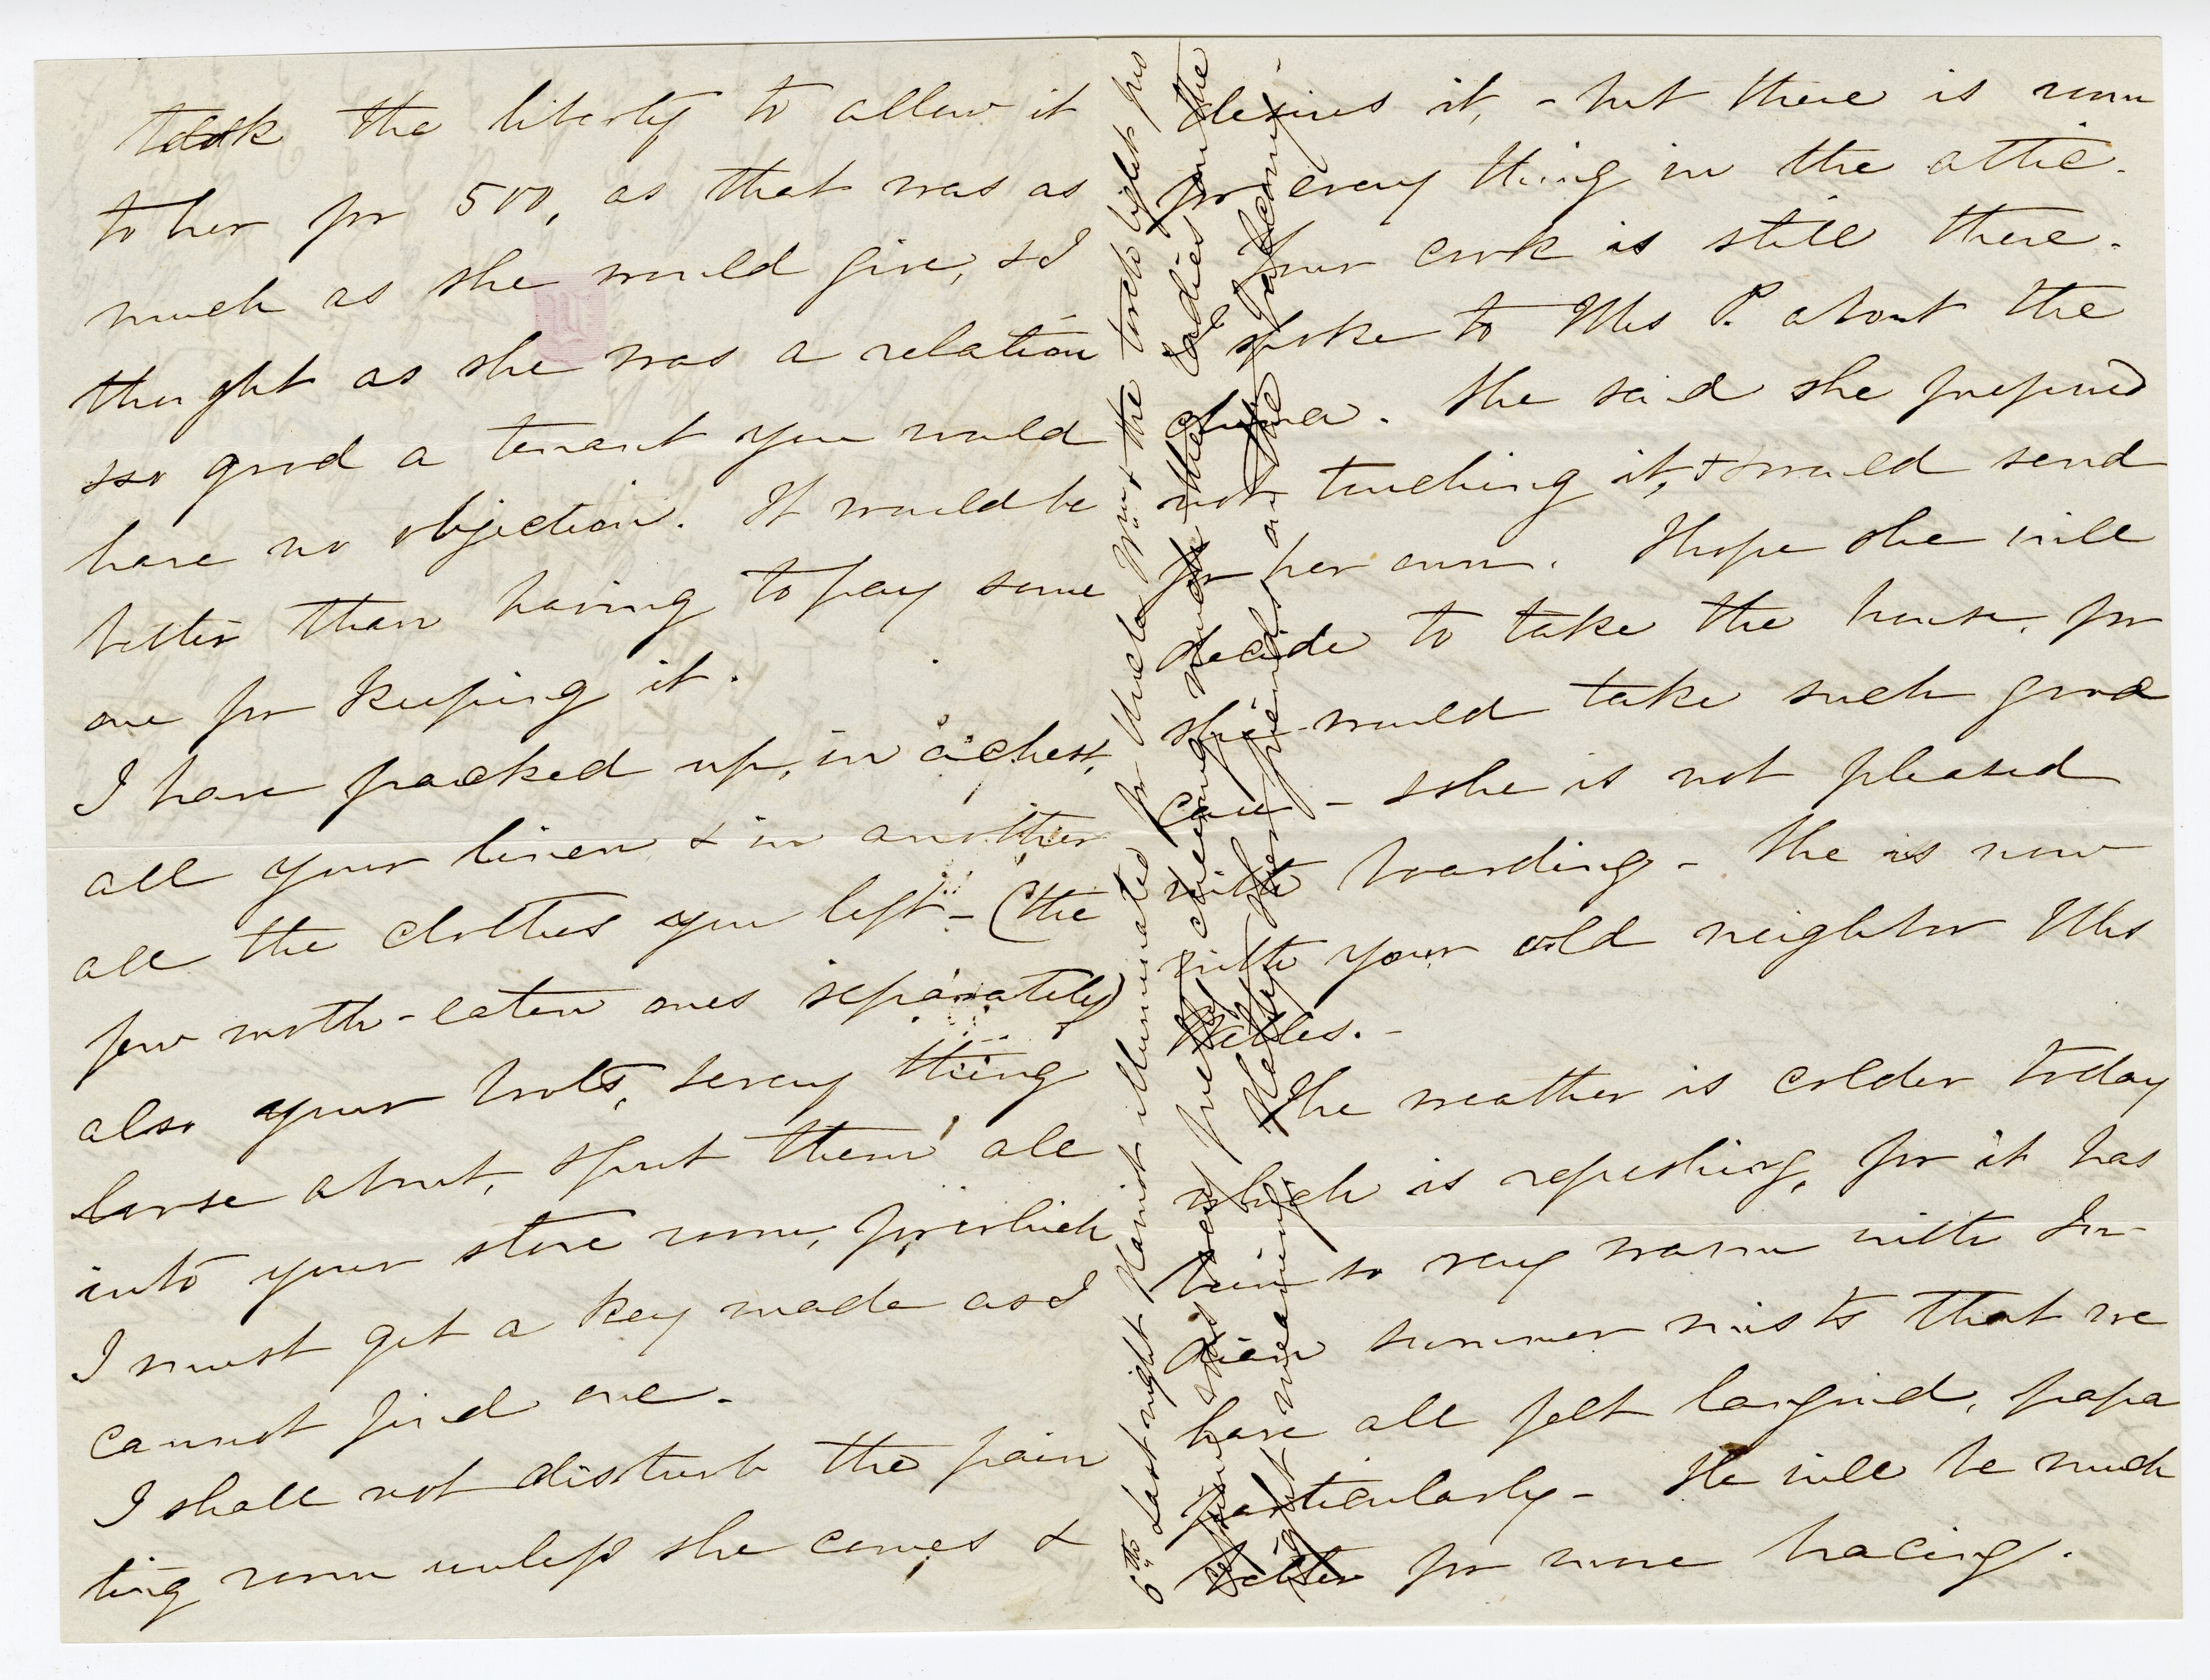 took the liberty to allow it
to her for 500, as that was as
much as she would give, & I
thought as she was a relation
& so good a tenant you would
have no objection. It would be
better than having to pay some
one for keeping it.
I have packed up, in a chest,
all your linen & in another
all the clothes you left - (the
few moth-eaten ones separately)
also your books, & every thing
loose about, & put them all
into your store room, for which
I must get a key made as I
cannot find one.
I shall not disturb the pain
ting room unless she comes &
desires it, - but there is room
for every thing in the attic.
Your cook is still there.
I spoke to Mrs P. about the
china. She said she preferred
not touching it, & would send
for her own. I hope she will
decide to take the house, for
she would take such good
care - & she is not pleased
with boarding - She is now
with your old neighbor Mrs
The weather is colder today
which is refreshing, for it has
been so very warm with In-
dian summer mists that we
have all felt languid, papa
particularly - He will be much
better for more bracing.
6th Last night Hamot illuminated for Uncle Wm & the torch light pro
cession was very pretty & cheering
Hattie & her friends
night meaning